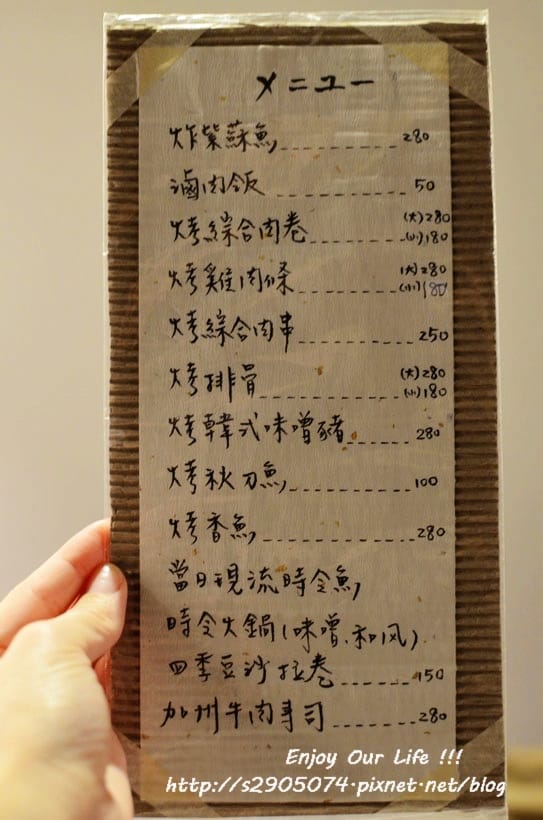 メニュー
炸紫蘇魚 280
滷肉飯 50
烤綜合肉卷 (大)280
(小)180
烤雞肉條 (大)280
(小)180
烤綜合肉串 250
烤排骨 (大)280
(小)180
烤韓式味噌豬 280
烤秋刀魚 100
烤香魚 280
當日現流時令魚
時令火鍋(味噌、和风)
四季豆沙拉卷 150
加州牛肉壽司 280
Enjoy Our Life !!!
http://s2905074.pixnet.net/blog